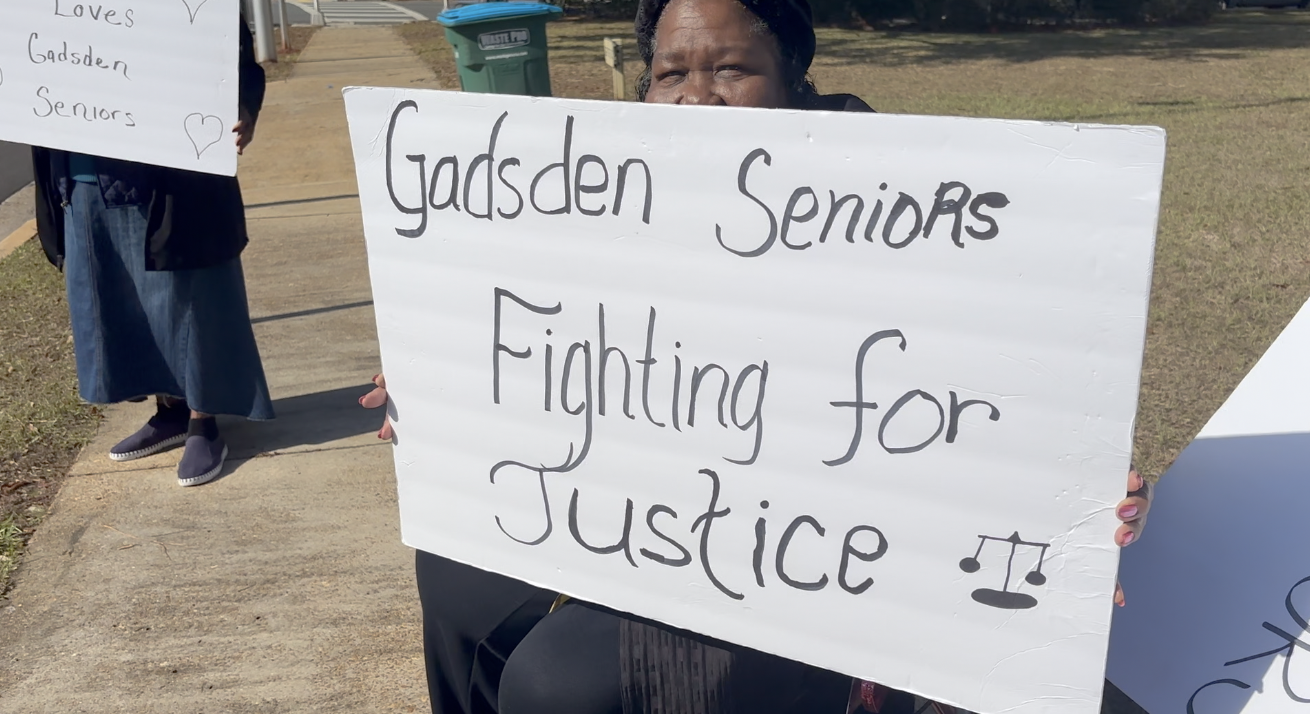 Loves
Gadsden
Seniors
WASTE PRO
Gadsden Seniors
Fighting for
Justice